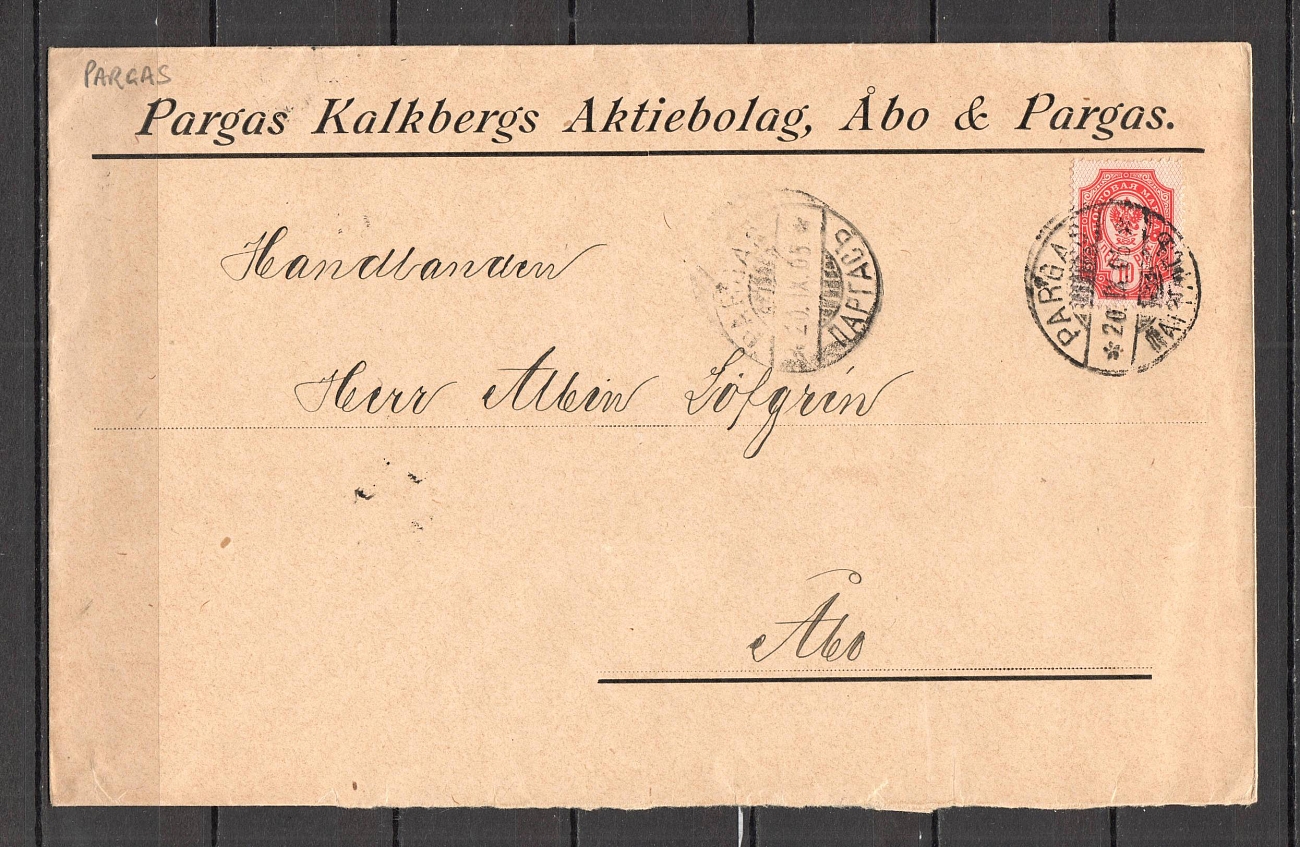 PARGAS
Pargas Kalkbergs Aktiebolag, Åbo & Pargas.
PARGAS * 20.IX.05 * ПАРГАСЪ
PARGAS * 20. ПАРГАСЪ
Handlanden
Herr Albin Löfgrén
Åbo